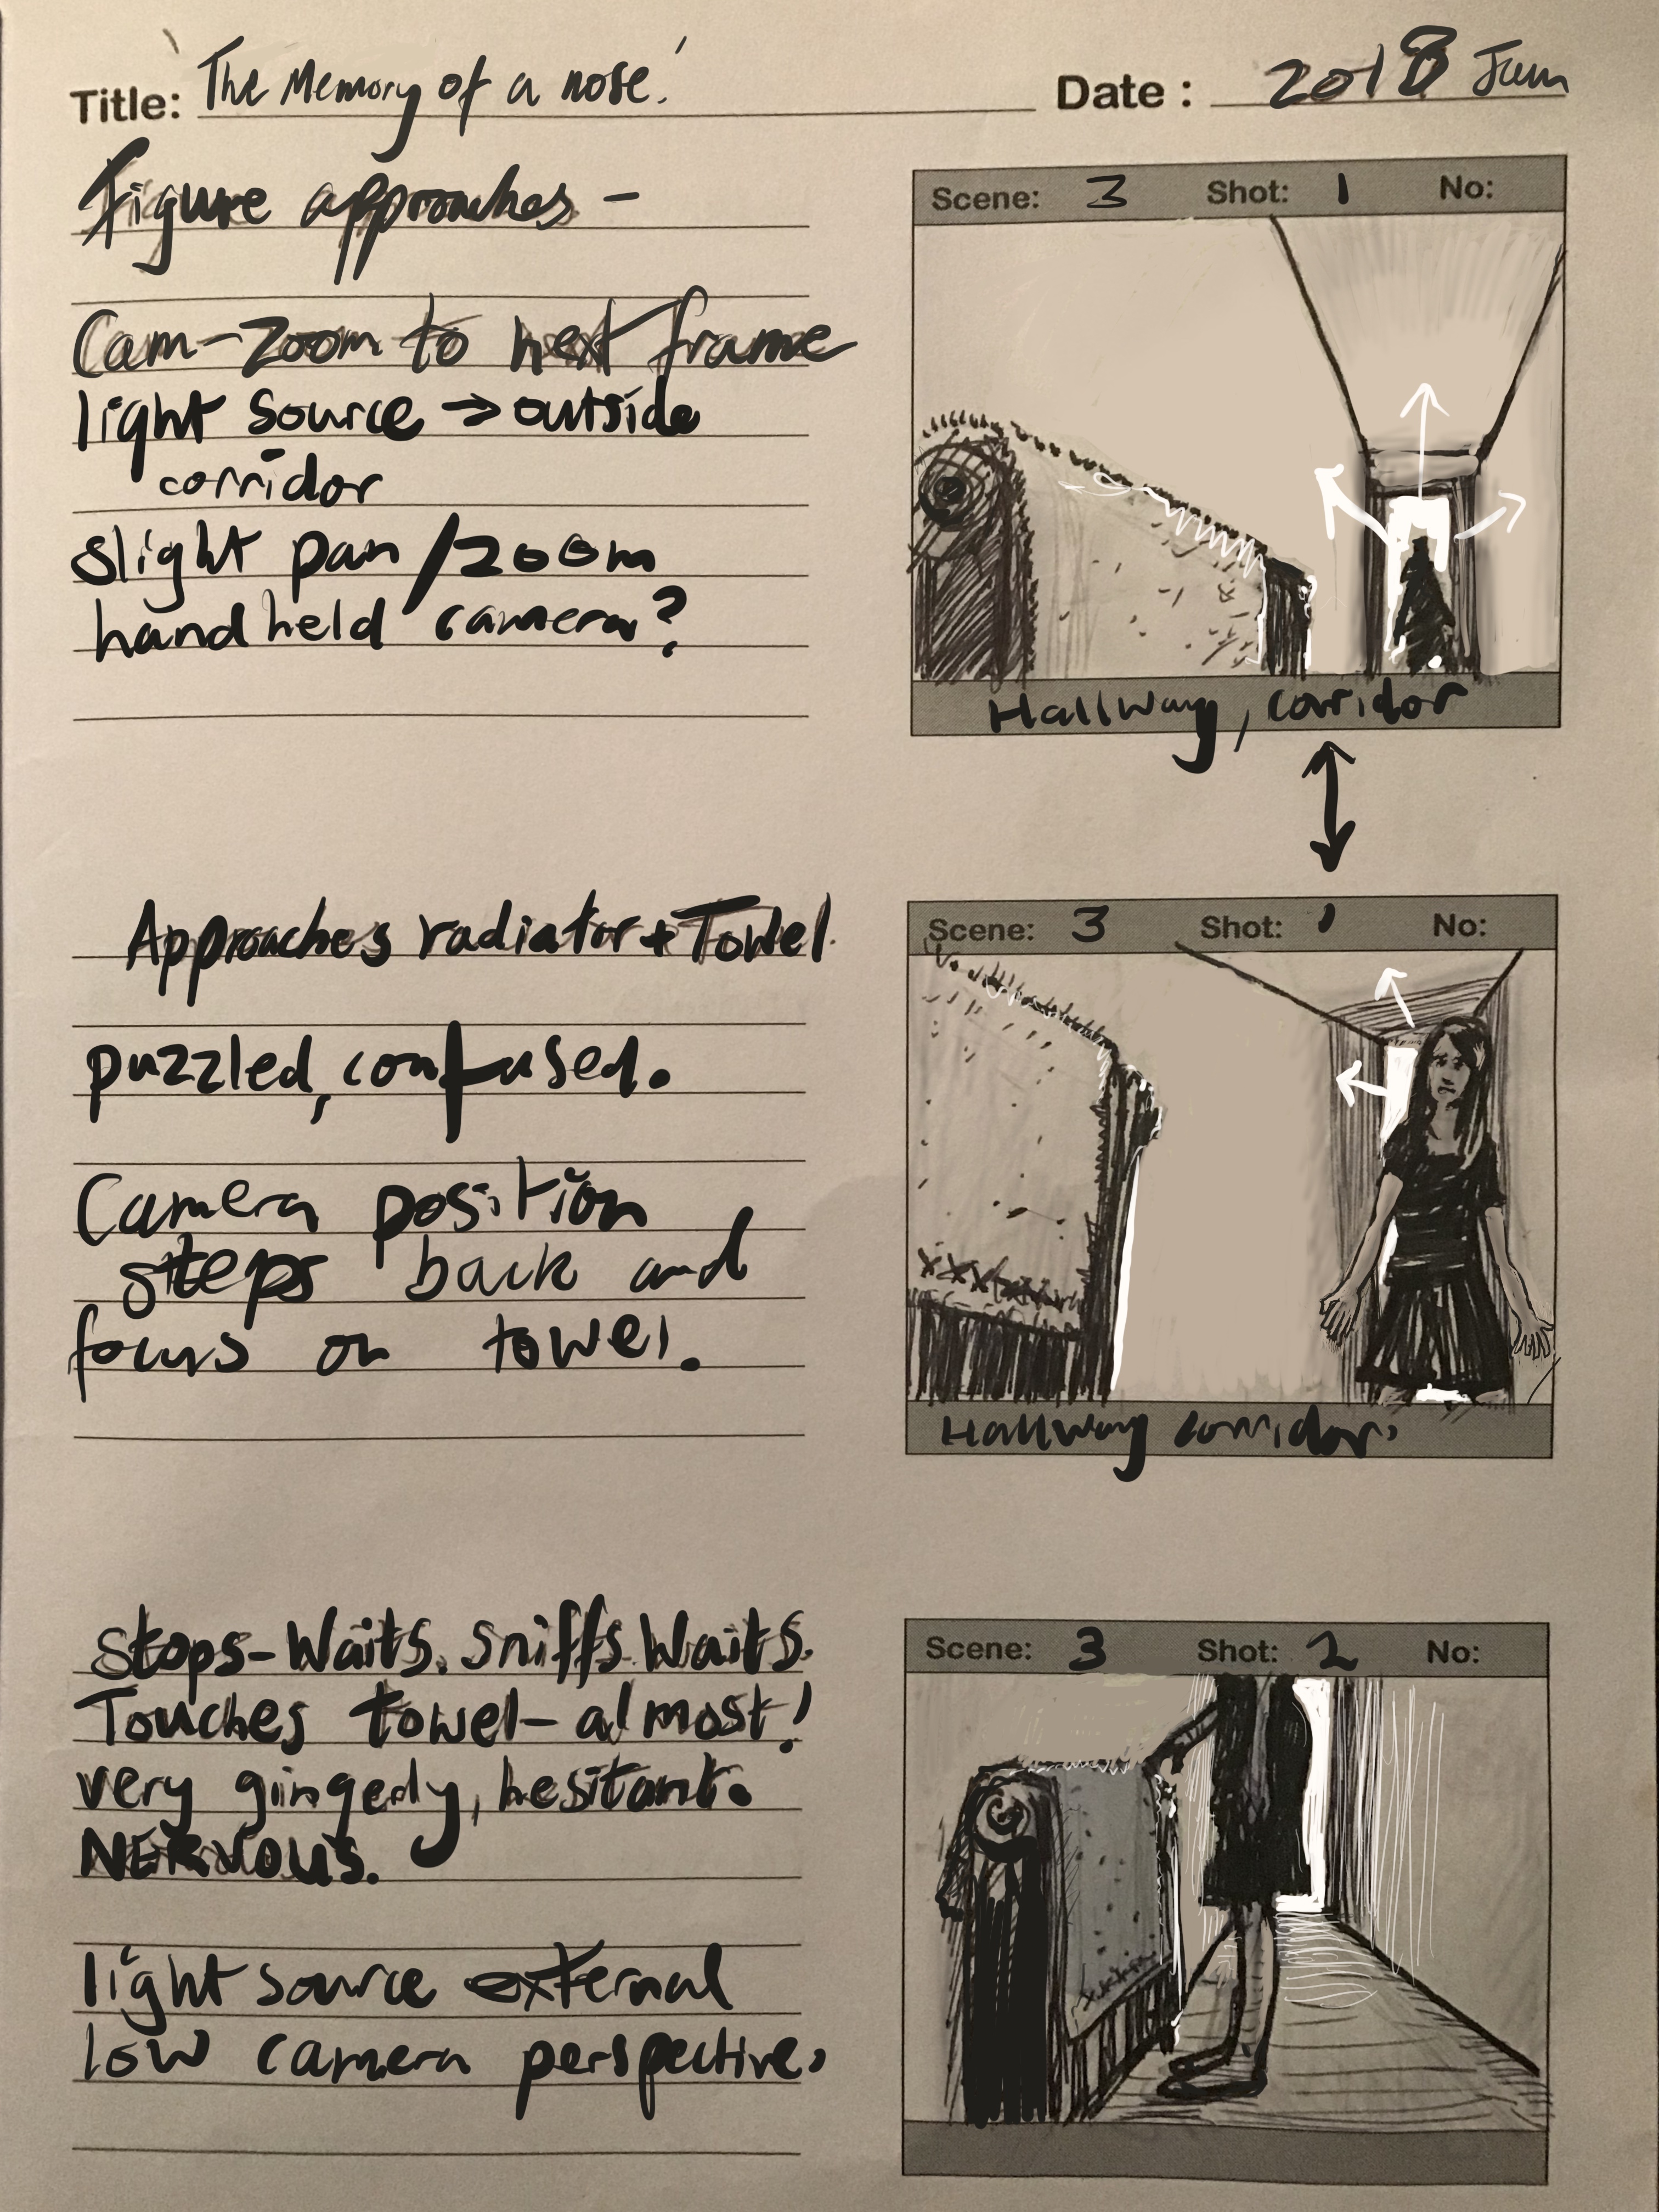 Title: 'The Memory of a nose.'
Date: 2018 Jun
Figure approaches -
Cam-Zoom to next frame
light source → outside
corridor
slight pan / zoom
handheld camera?
Scene: 3 Shot: 1 No:
Hallway, corridor
Approaches radiator + Towel.
puzzled, confused.
Camera position
steps back and
focus on towel.
Scene: 3 Shot: 1 No:
Hallway corridor.
Stops - Waits. Sniffs. Waits.
Touches towel - almost!
very gingerly, hesitant.
NERVOUS.
light source external
low camera perspective.
Scene: 3 Shot: 2 No: